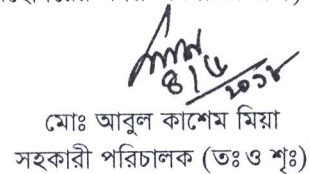 ৪/৫
২০১৮
মোঃ আবুল কাশেম মিয়া
সহকারী পরিচালক (তঃ ও শৃঃ)